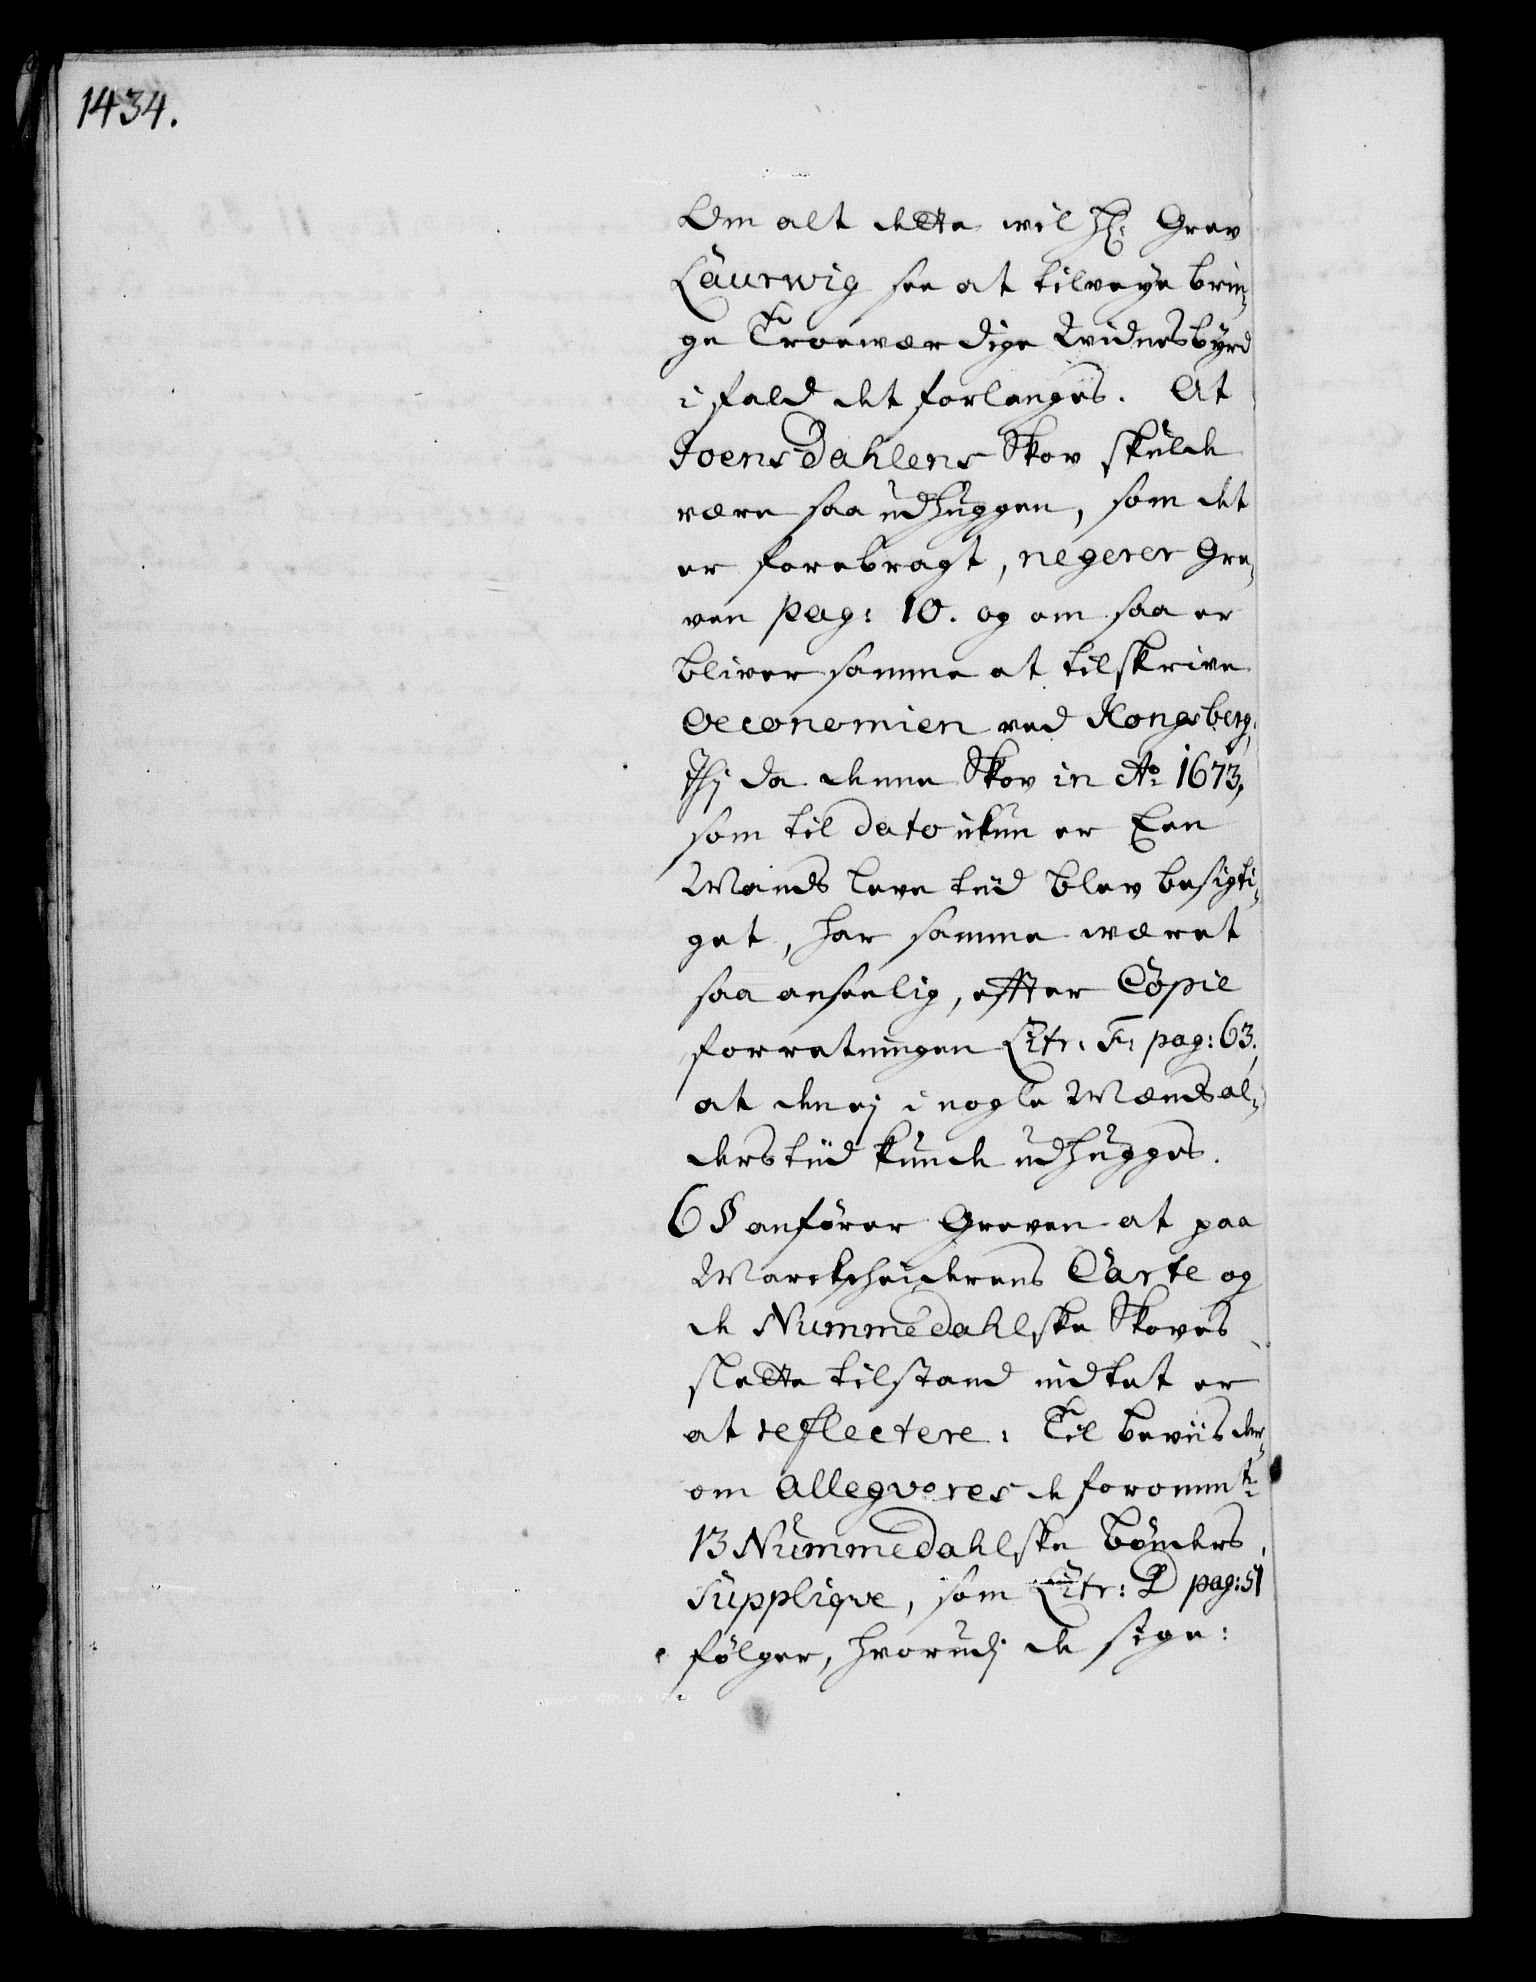 1434.
Om alt dette wil H: Grev
Laurwig see at tilveye brin-
ge Troeværdige Vidnesbyrd
i fald det forlanges. At
Joensdahlens Skov skulde
være saa udhuggen, som det
er forebragt, negerer Gre-
ven pag: 10. og om saa er
bliver samme at tilskrive
Oeconomien ved Kongsberg,
Thj da denne Skov in Ao 1673,
som til dato ikun er Een
Mands leve tiid blev besigti-
get, har samme været
saa anseelig, effter Copie
forretningen Litr: F: pag: 63.
at den ej i nogle Mænds al-
ders tiid kunde udhugges.
6 § anfører Greven at paa
Marckscheiderens Carte og
de Nummedahlske Skoves
slette tilstand indtet er
at reflectere: Til beviis der-
om allegveres de forommte
13 Nummedahlske bønders
supplique, som Litr: D pag: 51
følger, hvorudj de sige: